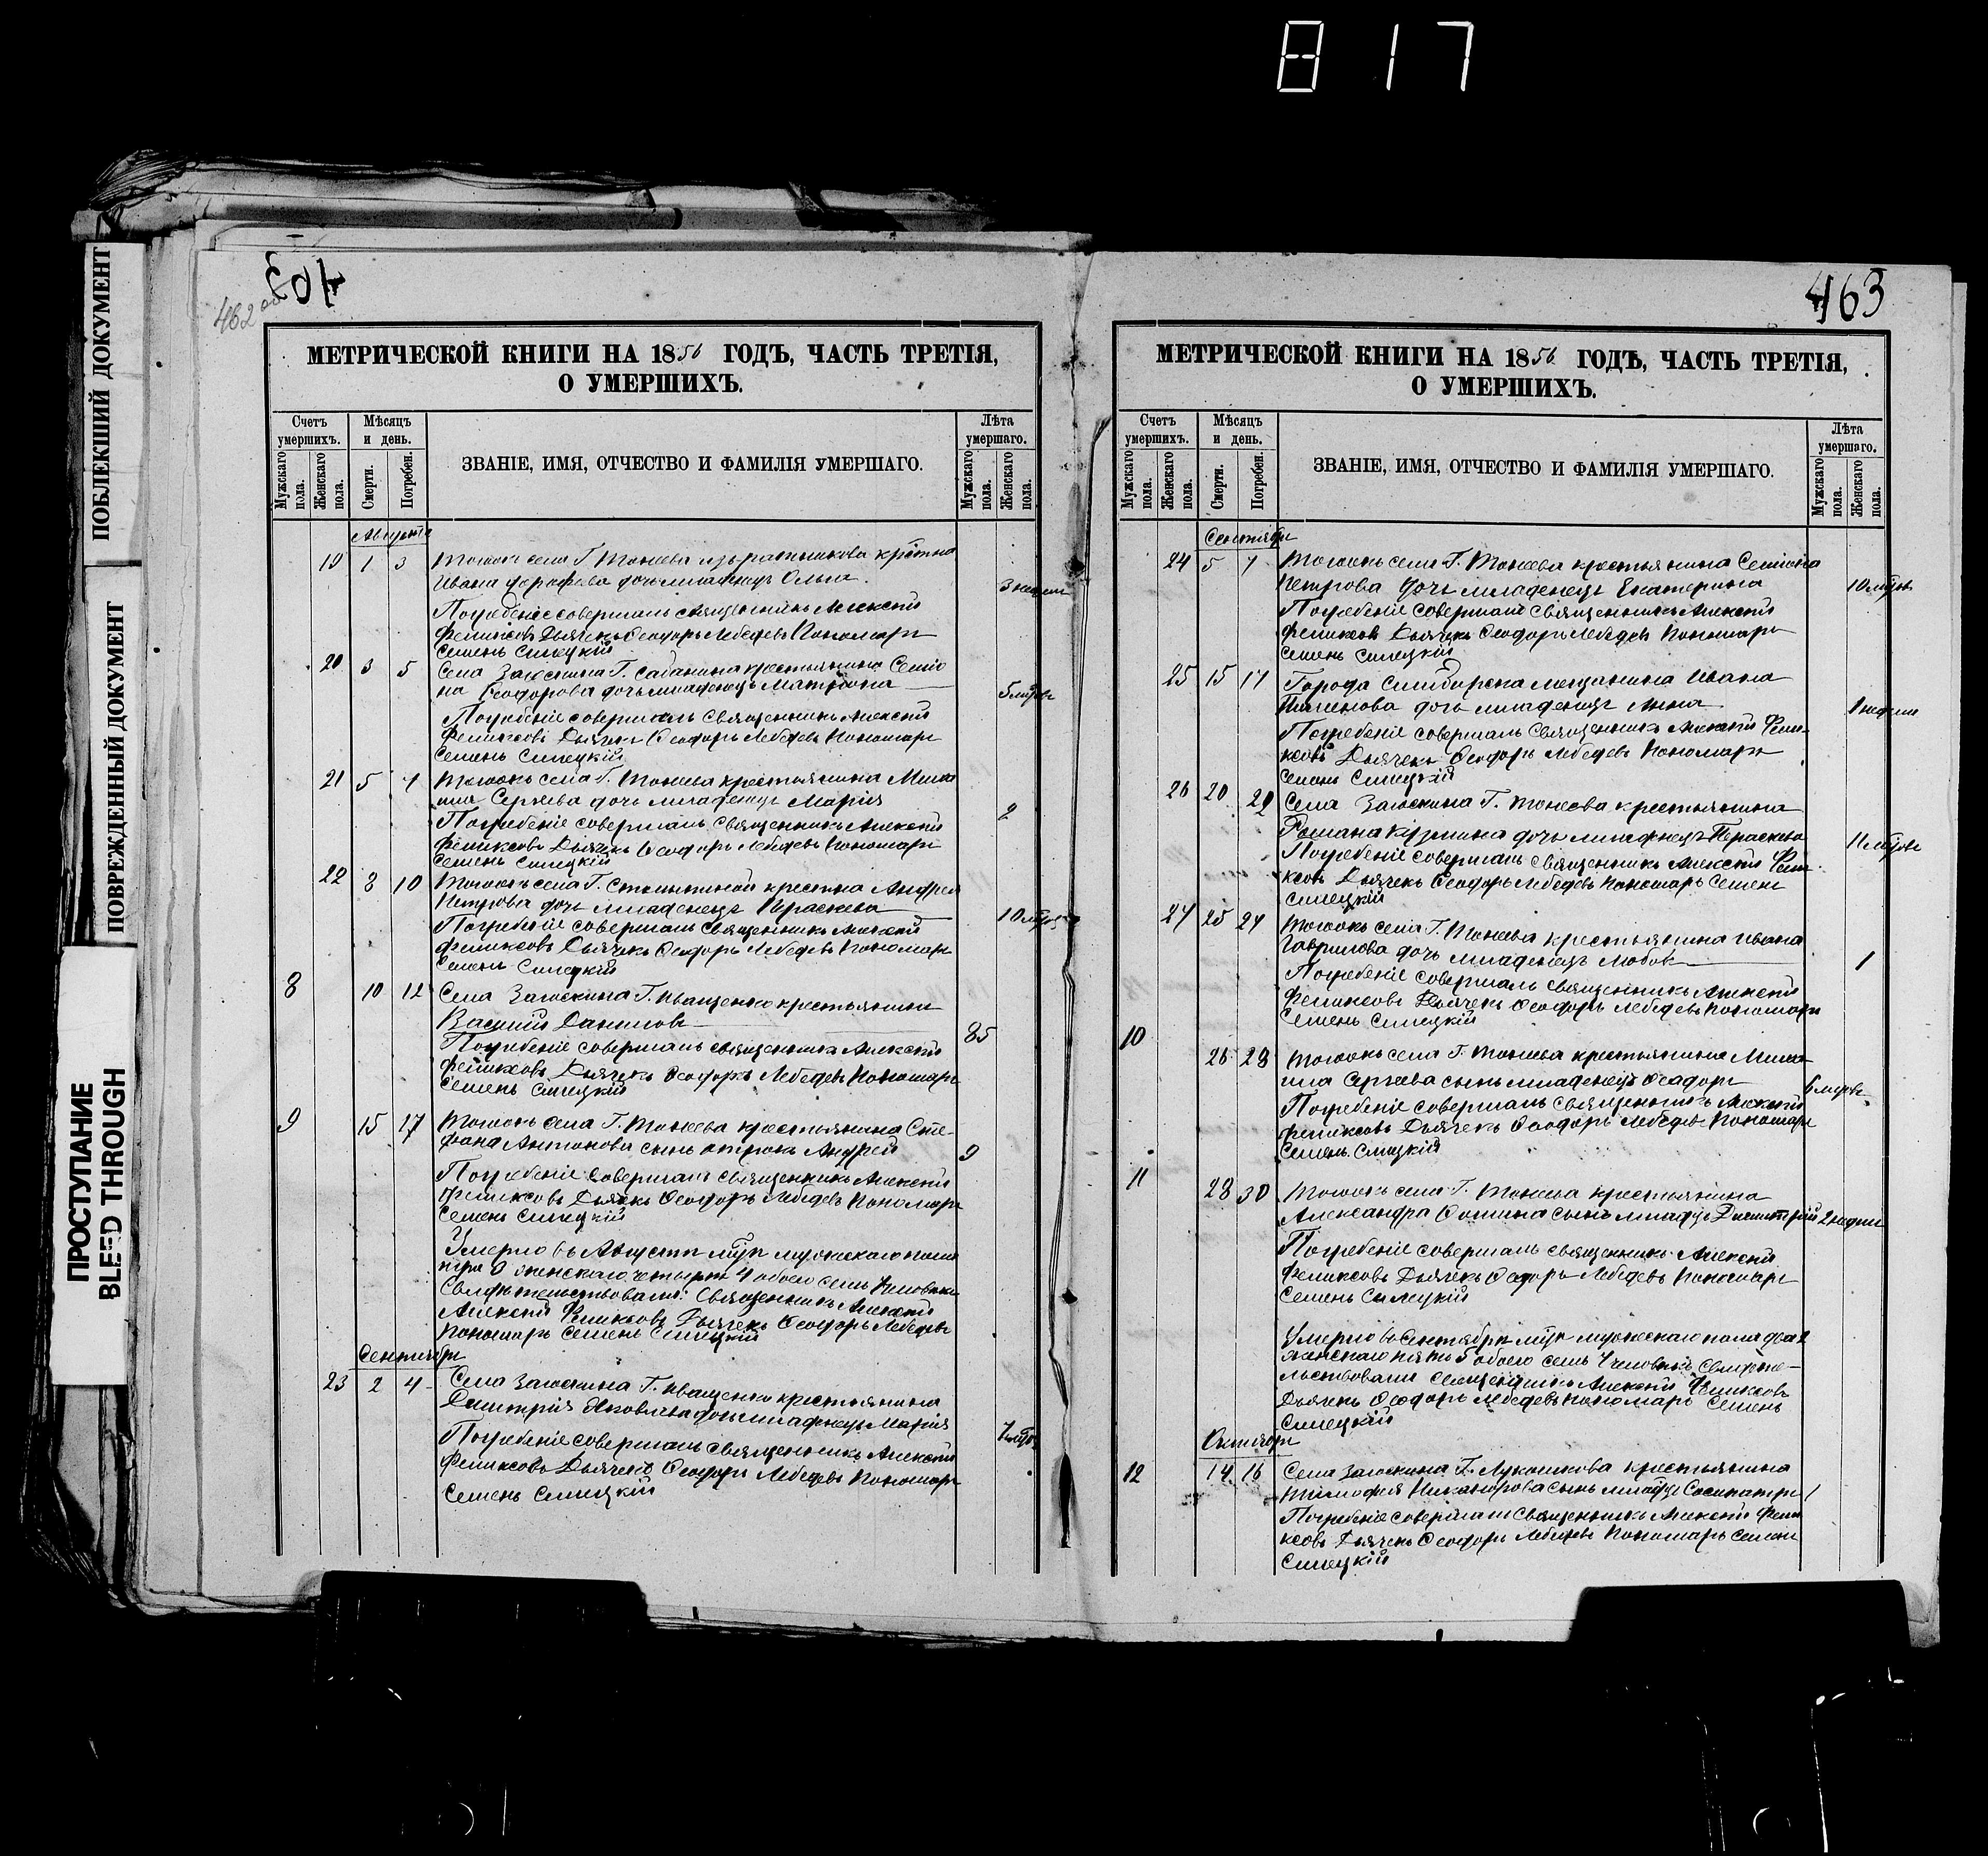 817
ПОБЛЕКШИЙ ДОКУМЕНТ
ПОВРЕЖДЕННЫЙ ДОКУМЕНТ
ПРОСТУПАНИЕ
BLEED THROUGH
462 об
403
МЕТРИЧЕСКОЙ КНИГИ НА 1856 ГОДЪ, ЧАСТЬ ТРЕТІЯ,
О УМЕРШИХЪ.
Счетъ умершихъ.
Мѣсяцъ и день.
ЗВАНІЕ, ИМЯ, ОТЧЕСТВО И ФАМИЛІЯ УМЕРШАГО.
Лѣта умершаго.
Мужскаго пола.
Женскаго пола.
Смерти.
Погребен.
Мужскаго пола.
Женскаго пола.
Августа
19 1 3 Тогожъ села Г. Тонеева
Ивана дочь младенецъ Ольга. 3 недели
Погребеніе совершалъ священникъ Алексѣй
Феликсовъ Дьячекъ Ѳеодоръ Лебедевъ Пономарь
Семенъ Силецкій
20 3 5 Села Загоскина Г. Сабанина крестьянина Семіо
на Ѳеодорова дочь младенецъ Матрона
Погребеніе совершалъ Священникъ Алексѣй
Феликсовъ Дьячекъ Ѳеодоръ Лебедевъ Пономарь
Семенъ Силецкій
21 5 7 Тогожъ села Г. Тонеева крестьянина Миха
ила Сергѣева дочь младенецъ Марія 2
Погребеніе совершалъ Священникъ Алексѣй
Феликсовъ Дьячекъ Ѳеодоръ Лебедевъ Пономарь
Семенъ Силецкій
22 8 10 Тогожъ села Г. крестьна Андрея
Петрова дочь младенецъ Параскева
Погребеніе совершалъ Священникъ Алексѣй
Феликсовъ Дьячекъ Ѳеодоръ Лебедевъ Пономарь
Семенъ Силецкій
8 10 12 Села Загоскина Г. Иващенко крестьянинъ
Василій Даниловъ 85
Погребеніе совершалъ священникъ Алексѣй
Феликсовъ Дьячекъ Ѳеодоръ Лебедевъ Пономарь
Семенъ Силецкій
9 15 17 Тогожъ села Г. Тонеева крестьянина Сте-
фана Антонова сынъ отрокъ Андрей 9
Погребеніе Совершалъ Священникъ Алексѣй
Феликсовъ Дьячекъ Ѳеодоръ Лебедевъ Пономарь
Семенъ Силецкій
Умерло въ Августѣ мужескаго пола
женскаго четыре 4 обоего семь человѣкъ
Свидѣтельствовали: Священникъ Алексѣй
Алексѣй Феликсовъ Дьячекъ Ѳеодоръ Лебедевъ
Пономарь Семенъ Силецкій
Сентября
23 2 4 Села Загоскина Г. Иващенко крестьянина
Дмитрія Яковлева дочь младенецъ Марія
Погребеніе совершалъ Священникъ Алексѣй
Феликсовъ Дьячекъ Ѳеодоръ Лебедевъ Пономарь
Семенъ Силецкій
463
МЕТРИЧЕСКОЙ КНИГИ НА 1856 ГОДЪ, ЧАСТЬ ТРЕТІЯ,
О УМЕРШИХЪ.
Счетъ умершихъ.
Мѣсяцъ и день.
ЗВАНІЕ, ИМЯ, ОТЧЕСТВО И ФАМИЛІЯ УМЕРШАГО.
Лѣта умершаго.
Мужскаго пола.
Женскаго пола.
Смерти.
Погребен.
Мужскаго пола.
Женскаго пола.
Сентября
24 5 7 Тогожъ села Г. Тонеева крестьянина Семіона
Петрова дочь младенецъ Екатерина
Погребеніе совершалъ Священникъ Алексѣй
Феликсовъ Дьячекъ Ѳеодоръ Лебедевъ Пономарь
Семенъ Силецкій
25 15 17 Города Симбирска мещанина Ивана
Пименова дочь младенецъ Анна 1 неделя
Погребеніе совершалъ Священникъ Алексѣй Фели-
ксовъ Дьячекъ Ѳеодоръ Лебедевъ Пономарь
Семенъ Силецкій
26 20 Села Загоскина Г. Тонеева крестьянина
Романа Кузмина дочь младенецъ Параскева
Погребеніе совершалъ Священникъ Алексѣй Фели-
ксовъ Дьячекъ Ѳеодоръ Лебедевъ Пономарь Семенъ
Силецкій
27 25 27 Тогожъ села Г. Тонеева крестьянина Ивана
Гаврилова дочь младенецъ Любовь 1
Погребеніе совершалъ Священникъ Алексѣй
Феликсовъ Дьячекъ Ѳеодоръ Лебедевъ Пономарь
Семенъ Силецкій
10 26 28 Тогожъ села Г. Тонеева крестьянина Миха-
ила Сергѣева сынъ младенецъ Ѳеодоръ
Погребеніе совершалъ Священникъ Алексѣй
Феликсовъ Дьячекъ Ѳеодоръ Лебедевъ Пономарь
Семенъ Силецкій
11 28 30 Тогожъ села Г. Тонеева крестьянина
Александра Ѳомина сынъ Димитрій 2 недели
Погребеніе совершалъ священникъ Алексѣй
Феликсовъ Дьячекъ Ѳеодоръ Лебедевъ Пономарь
Семенъ Силецкій
Умерло въ Сентябрѣ мужескаго пола два 2
женскаго пять 5 обоего семь 7 человѣкъ Свидѣте-
льствовали Священникъ Алексѣй Феликсовъ
Дьячекъ Ѳеодоръ Лебедевъ Пономарь Семенъ
Силецкій
Октября
12 14 16 Села Загоскина Г. Лукошкова крестьянина
Тимофея Никанорова сынъ Сосипатръ 1
Погребеніе совершалъ Священникъ Алексѣй Фели
ксовъ Дьячекъ Ѳеодоръ Лебедевъ Пономарь Семенъ
Силецкій